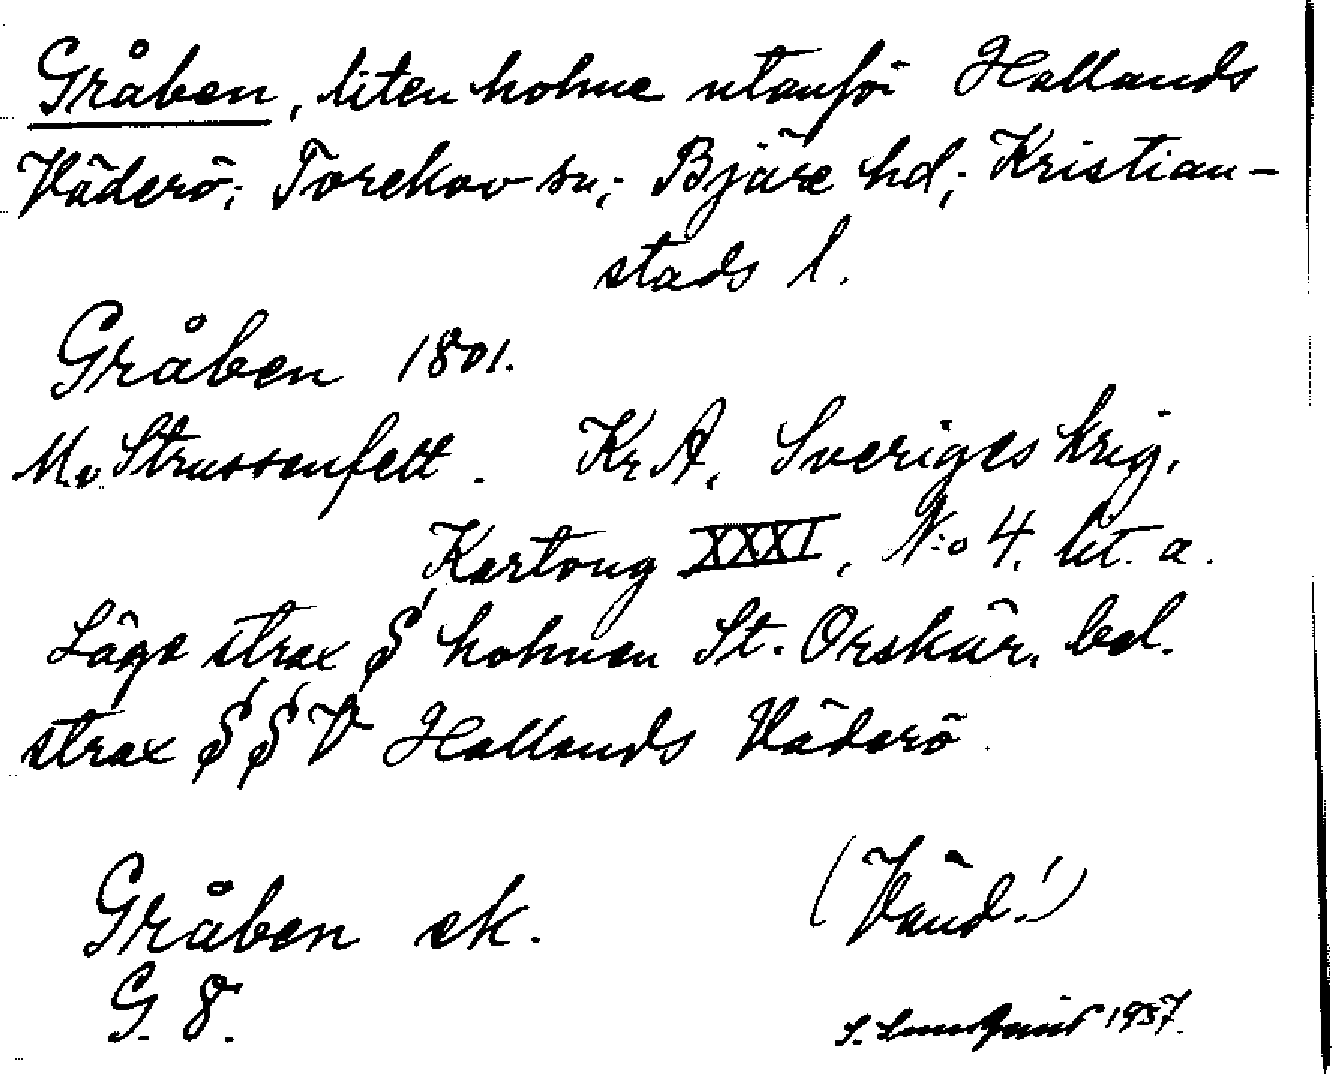 Gråben, liten holme utanför Hallands
Väderö; Torekov sn; Bjäre hd; Kristian-
stads l.
Gråben 1801.
M. v. Strussenfelt. Kr. A. Sveriges krig.
Kartong XXXI, N:o 4. lit. a.
Läge strax S holmen St. Orskär, bel.
strax S S V Hallands Väderö.
Gråben ek.
(Vänd!)
G. 8.
S. Lundquist 1937.